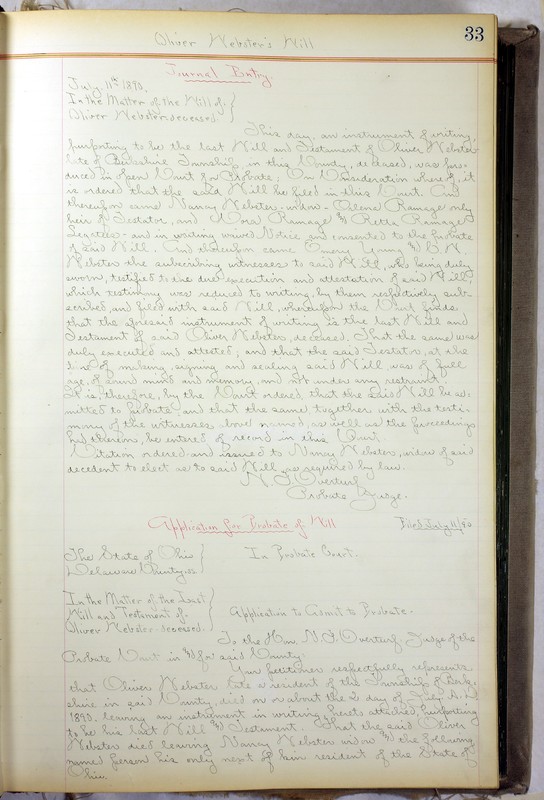 33
Oliver Webster's Will
Journal Entry.
July. 11th 1890.
In the Matter of the Will of
Oliver Webster deceased.
This day, an instrument of writing,
purporting to be the last Will and Testament of Oliver Webster
late of Berkshire Township in this County, deceased, was pro-
duced in open Court for Probate: On Consideration whereof, it
is ordered that the said Will be filed in this Court. And
thereupon came Nancy Webster, widow - Ramage only
heir of Testator, and Nora Ramage and Ramage
Legatees - and in writing waived Notice and consented to the probate
of said Will. And thereupon came Young and
Webster the subscribing witnesses to said Will, who being duly
sworn, testified to the due execution and attestation of said Will;
which testimony was reduced to writing, by them respectively sub-
scribed, and filed with said Will, whereupon the Court finds
that the aforesaid instrument of writing is the last Will and
Testament of said Oliver Webster, deceased. That the same was
duly executed and attested, and that the said Testator, at the
time of making, signing and sealing said Will was of full
age, of sound mind and memory, and not under any restraint.
It is, therefore, by the Court ordered, that the said Will be ad-
mitted to probate, and that the same, together with the testi-
mony of the witnesses above named, as well as the proceedings
had thereon, be entered of record in this Court.
Citation ordered and issued to Nancy Webster, widow of said
decedent to elect as to said Will, as required by law.
N. F. Overturf
Probate Judge.
Application for Probate of Will Filed July 11/90
The State of Ohio
Delaware County, ss
In Probate Court.
In the Matter of the Last
Will and Testament of
Oliver Webster deceased.
Application to Admit to Probate.
To the Hon. N. F. Overturf, Judge of the
Probate Court in and for said County:
Your petitioner respectfully represents
that Oliver Webster late a resident of the Township of Berk-
shire in said County, died on or about the 2 day of A.D.
1890, leaving an instrument in writing, hereto attached, purporting
to be his last Will and Testament. That the said Oliver
Webster died leaving Nancy Webster widow and the following
named person his only next of kin resident of the State of
Ohio.